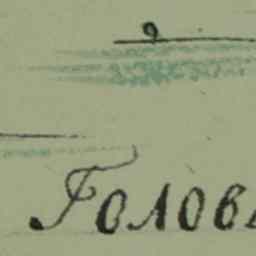 Голов